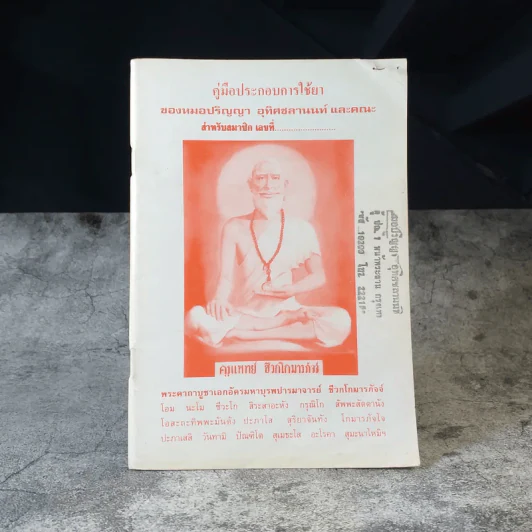 คู่มือประกอบการใช้ยา
ของหมอปริญญา อุทิศชลานนท์ และคณะ
สำหรับสมาชิก เลขที่..........................
คุณแพทย์ ชีวกโกมารภัจจ์
พระคาถาบูชาเอกอัครมหาบุรพปารมาจารย์ ชีวกโกมารภัจจ์
โอม นะโม ชีวะโก สิระสาอะหัง กรุณิโก สัพพะสัตตานัง
โอสะถะทิพพะมันตัง ปะภาโส สุริยาจันทัง โกมารภัจโจ
ปะภาเสสิ วันทามิ ปัณฑิโต สุเมธะโส อะโรคา สุมะนาโหมิฯ